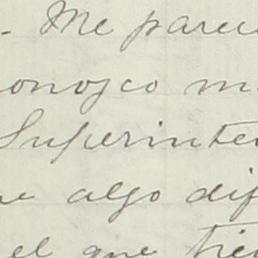 . Me parec
onosco m
Superinte
e algo dif
el que tie